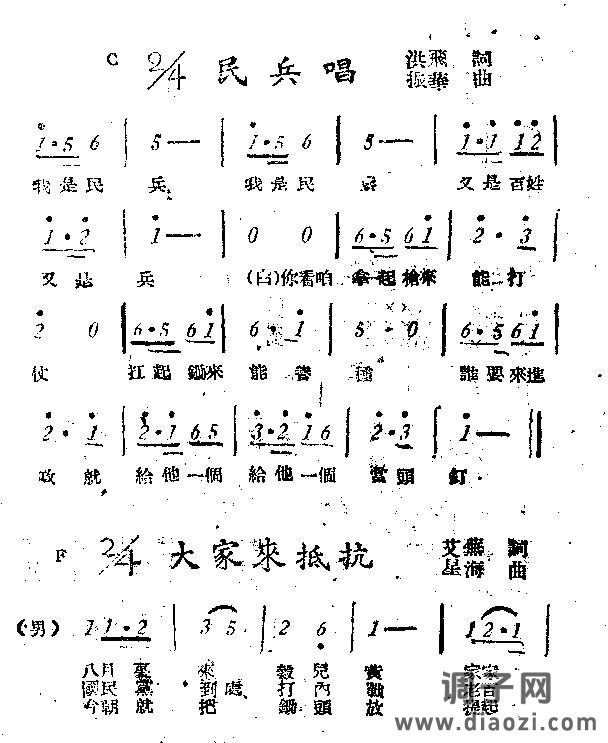 C 2/4 民兵唱 洪飛 詞
振華 曲
1·5 6 | 5 — | 1·5 6 | 5 — | 1·1 12
我是民 兵 我是民 兵 又是百姓
1·2 | 1 — | 0 0 | 6·5 61 | 2·3
又是 兵 (白)你看咱 拿起槍來 能打
2 0 | 6·5 61 | 6·1 | 5·0 | 6·5 61
仗 扛起鋤來 能養 種 誰要來進
2·1 | 2·1 65 | 3·2 16 | 2·3 | 1 —
攻就 給他一個 給他一個 當頭 釘
F 2/4 大家來抵抗 艾蕪 詞
星海 曲
(男) 1 1·2 | 3 5 | 2 6 | 1 — | 1 2·1
八月裏 來 穀兒 黄 家家
國民黨 到處 打內
今朝就 把 鋤頭 放
调子网
www.diaozi.com